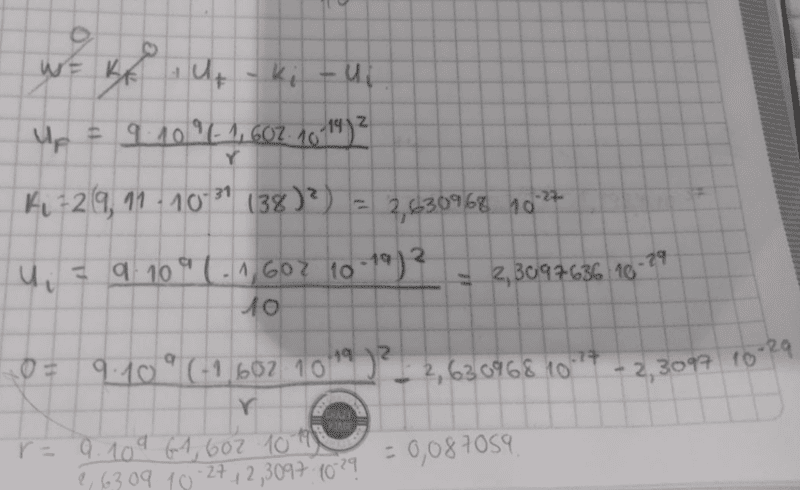 0 0
W = Kf + Uf - Ki - Ui
UF = 9·10^9(-1,602·10^-19)^2 / r
Ki = 2(9,11·10^-31 (38)^2) = 2,630968 10^-27
Ui = 9·10^9 (-1,602 10^-19)^2 / 10 = 2,3097636 10^-29
0 = 9·10^9 (-1,602 10^-19)^2 / r - 2,630968 10^-27 - 2,3097 10^-29
r = 9·10^9 (-1,602 10^-19) / 2,6309 10^-27 + 2,3097·10^-29 = 0,087059